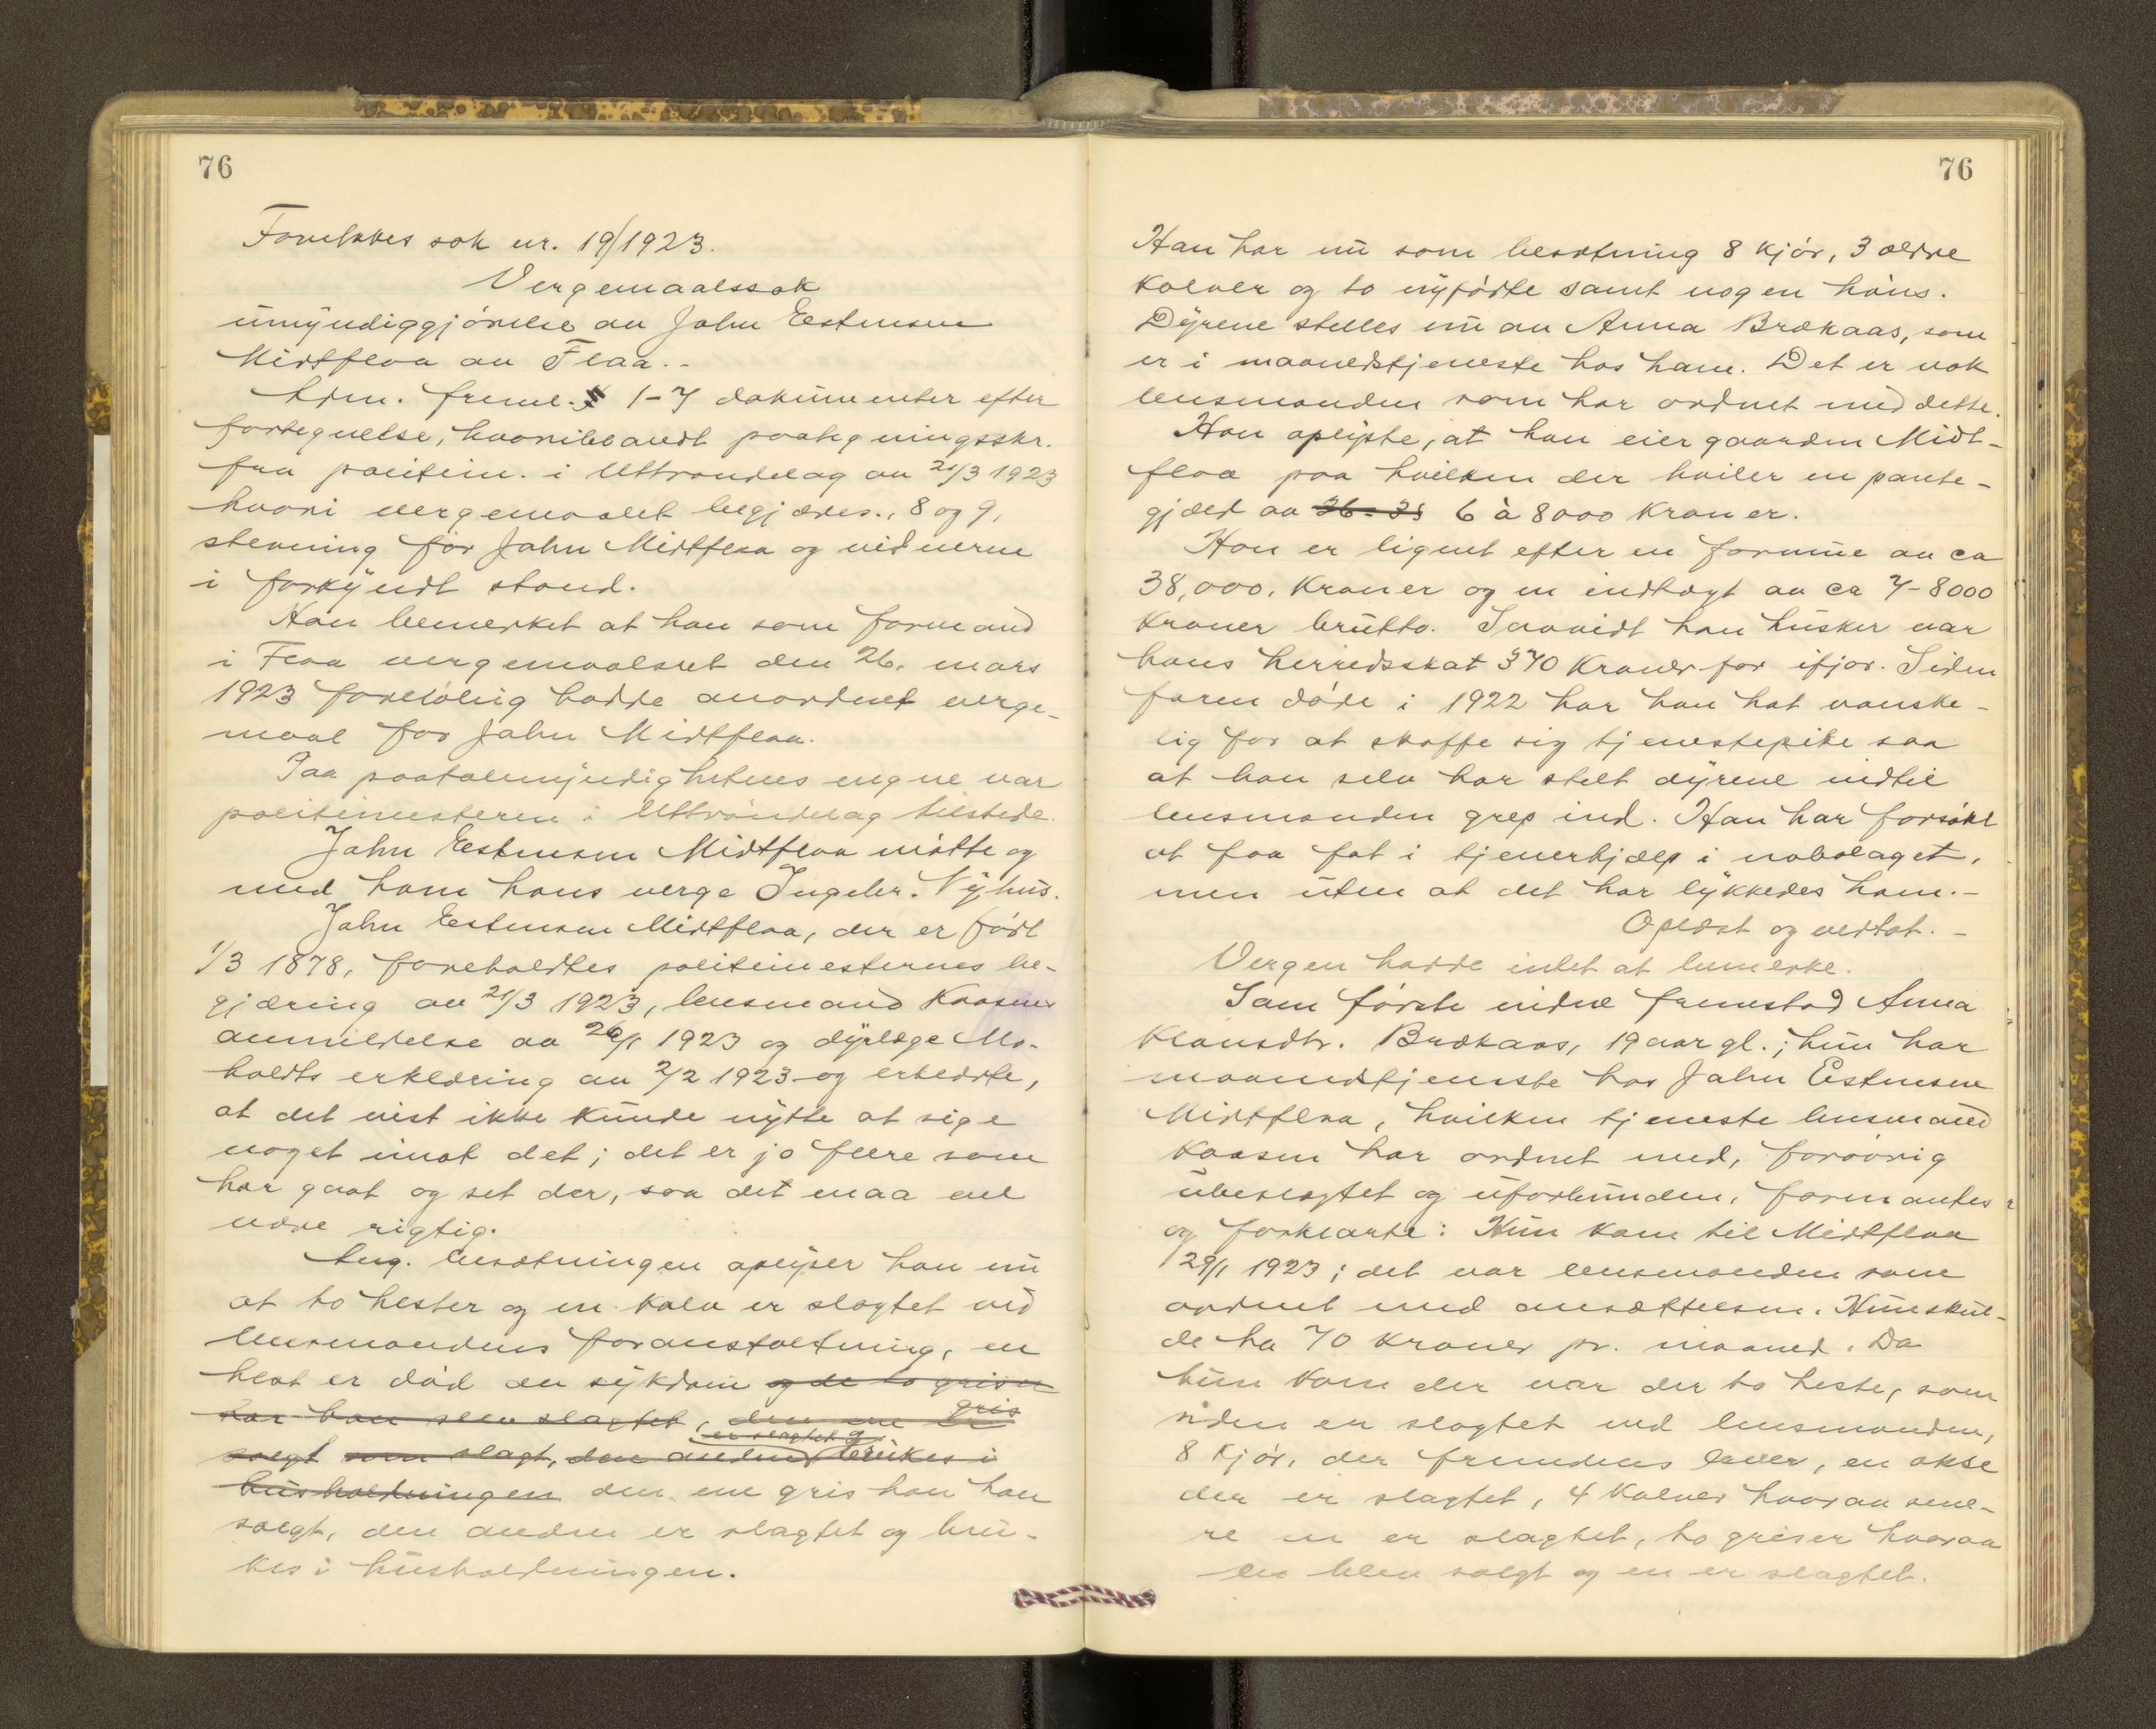 76
Foretokes sak nr. 19/1923.
Vergemaalssak
umyndiggjørelse av John Estensen
Midtflaa av Flaa..
Adm. freml. 1-7 dokumenter efter
fortegnelse, hvoriblandt paategningsskr.
fra politim. i Uttrøndelag av 21/3 1923
hvori vergemaalet begjæres., 8 og 9,
stevning for John Midtflaa og vidnerne
i forkyndt stand.
Han bemerket at han som formand
i Flaa vergemaalsret den 26. mars
1923 foreløbig hadde anordnet verge-
maal for John Midtflaa.
Paa paatalemyndighetens vegne var
politimesteren i Uttrøndelag tilstede.
John Estensen Midtflaa møtte og
med ham hans verge Ingebr. Nyhus.
John Estensen Midtflaa, der er født
1/3 1878, foreholdtes politimesterens be-
gjæring av 21/3 1923, lensmand Kaasens
anmeldelse av 26/1 1923 og dyrlæge Mo-
holdts erklæring av 2/2 1923 og erklærte,
at det vist ikke kunde nytte at sige
noget imot det; det er jo flere som
har gaat og set der, saa det maa vel
være rigtig.
Ang. besætningen oplyser han nu
at to hester og en kalv er slagtet ved
lensmandens foranstaltning, en
hest er død av sykdom og de to griser
har han selv slagtet, den ene er gris
solgt som slagt, den anden er slagtet og brukes i
husholdningen den ene gris har han
solgt, den anden er slagtet og bru-
kes i husholdningen.
76
Han har nu som besætning 8 kjør, 3 ældre
kalver og to nyfødte samt nogen høns.
Dyrene stelles nu av Anna Brækaas, som
er i maanedstjeneste hos ham. Det er nok
lensmanden som har ordnet med dette.
Han oplyste, at han eier gaarden Midt-
flaa paa hvilken der hviler en pante-
gjæld av 26-28 6 à 8000 kroner.
Han er lignet efter en formue av ca
38,000, kroner og en indtægt av ca 7-8000
kroner brutto. Saavidt han husker var
hans herredsskat 370 kroner for ifjor. Siden
faren døde i 1922 har han hat vanske-
lig for at skaffe sig tjenestepike saa
at han selv har stelt dyrene indtil
lensmanden grep ind. Han har forsøkt
at faa fat i tjenerhjælp i nabolaget,
men uten at det har lykkedes ham.-
Oplæst og vedtat.-
Vergen hadde intet at bemerke.
Som første vidne fremstod Anna
Klausdtr. Brækaas, 19 aar gl.; hun har
maanedstjeneste hos John Estensen
Midtflaa, hvilken tjeneste lensmand
Kaasen har ordnet med, forøvrig
ubeslægtet og uforbunden, formantes
og forklarte: Hun kom til Midtflaa
29/1 1923; det var lensmanden som
ordnet med ansættelsen. Hun skul-
de ha 70 kroner pr. maaned. Da
hun kom der var der to heste, som
siden er slagtet ved lensmanden,
8 kjør, der fremdeles lever, en okse
der er slagtet, 4 kalver hvorav sene-
re en er slagtet, to griser hvorav
en blev solgt og en er slagtet.